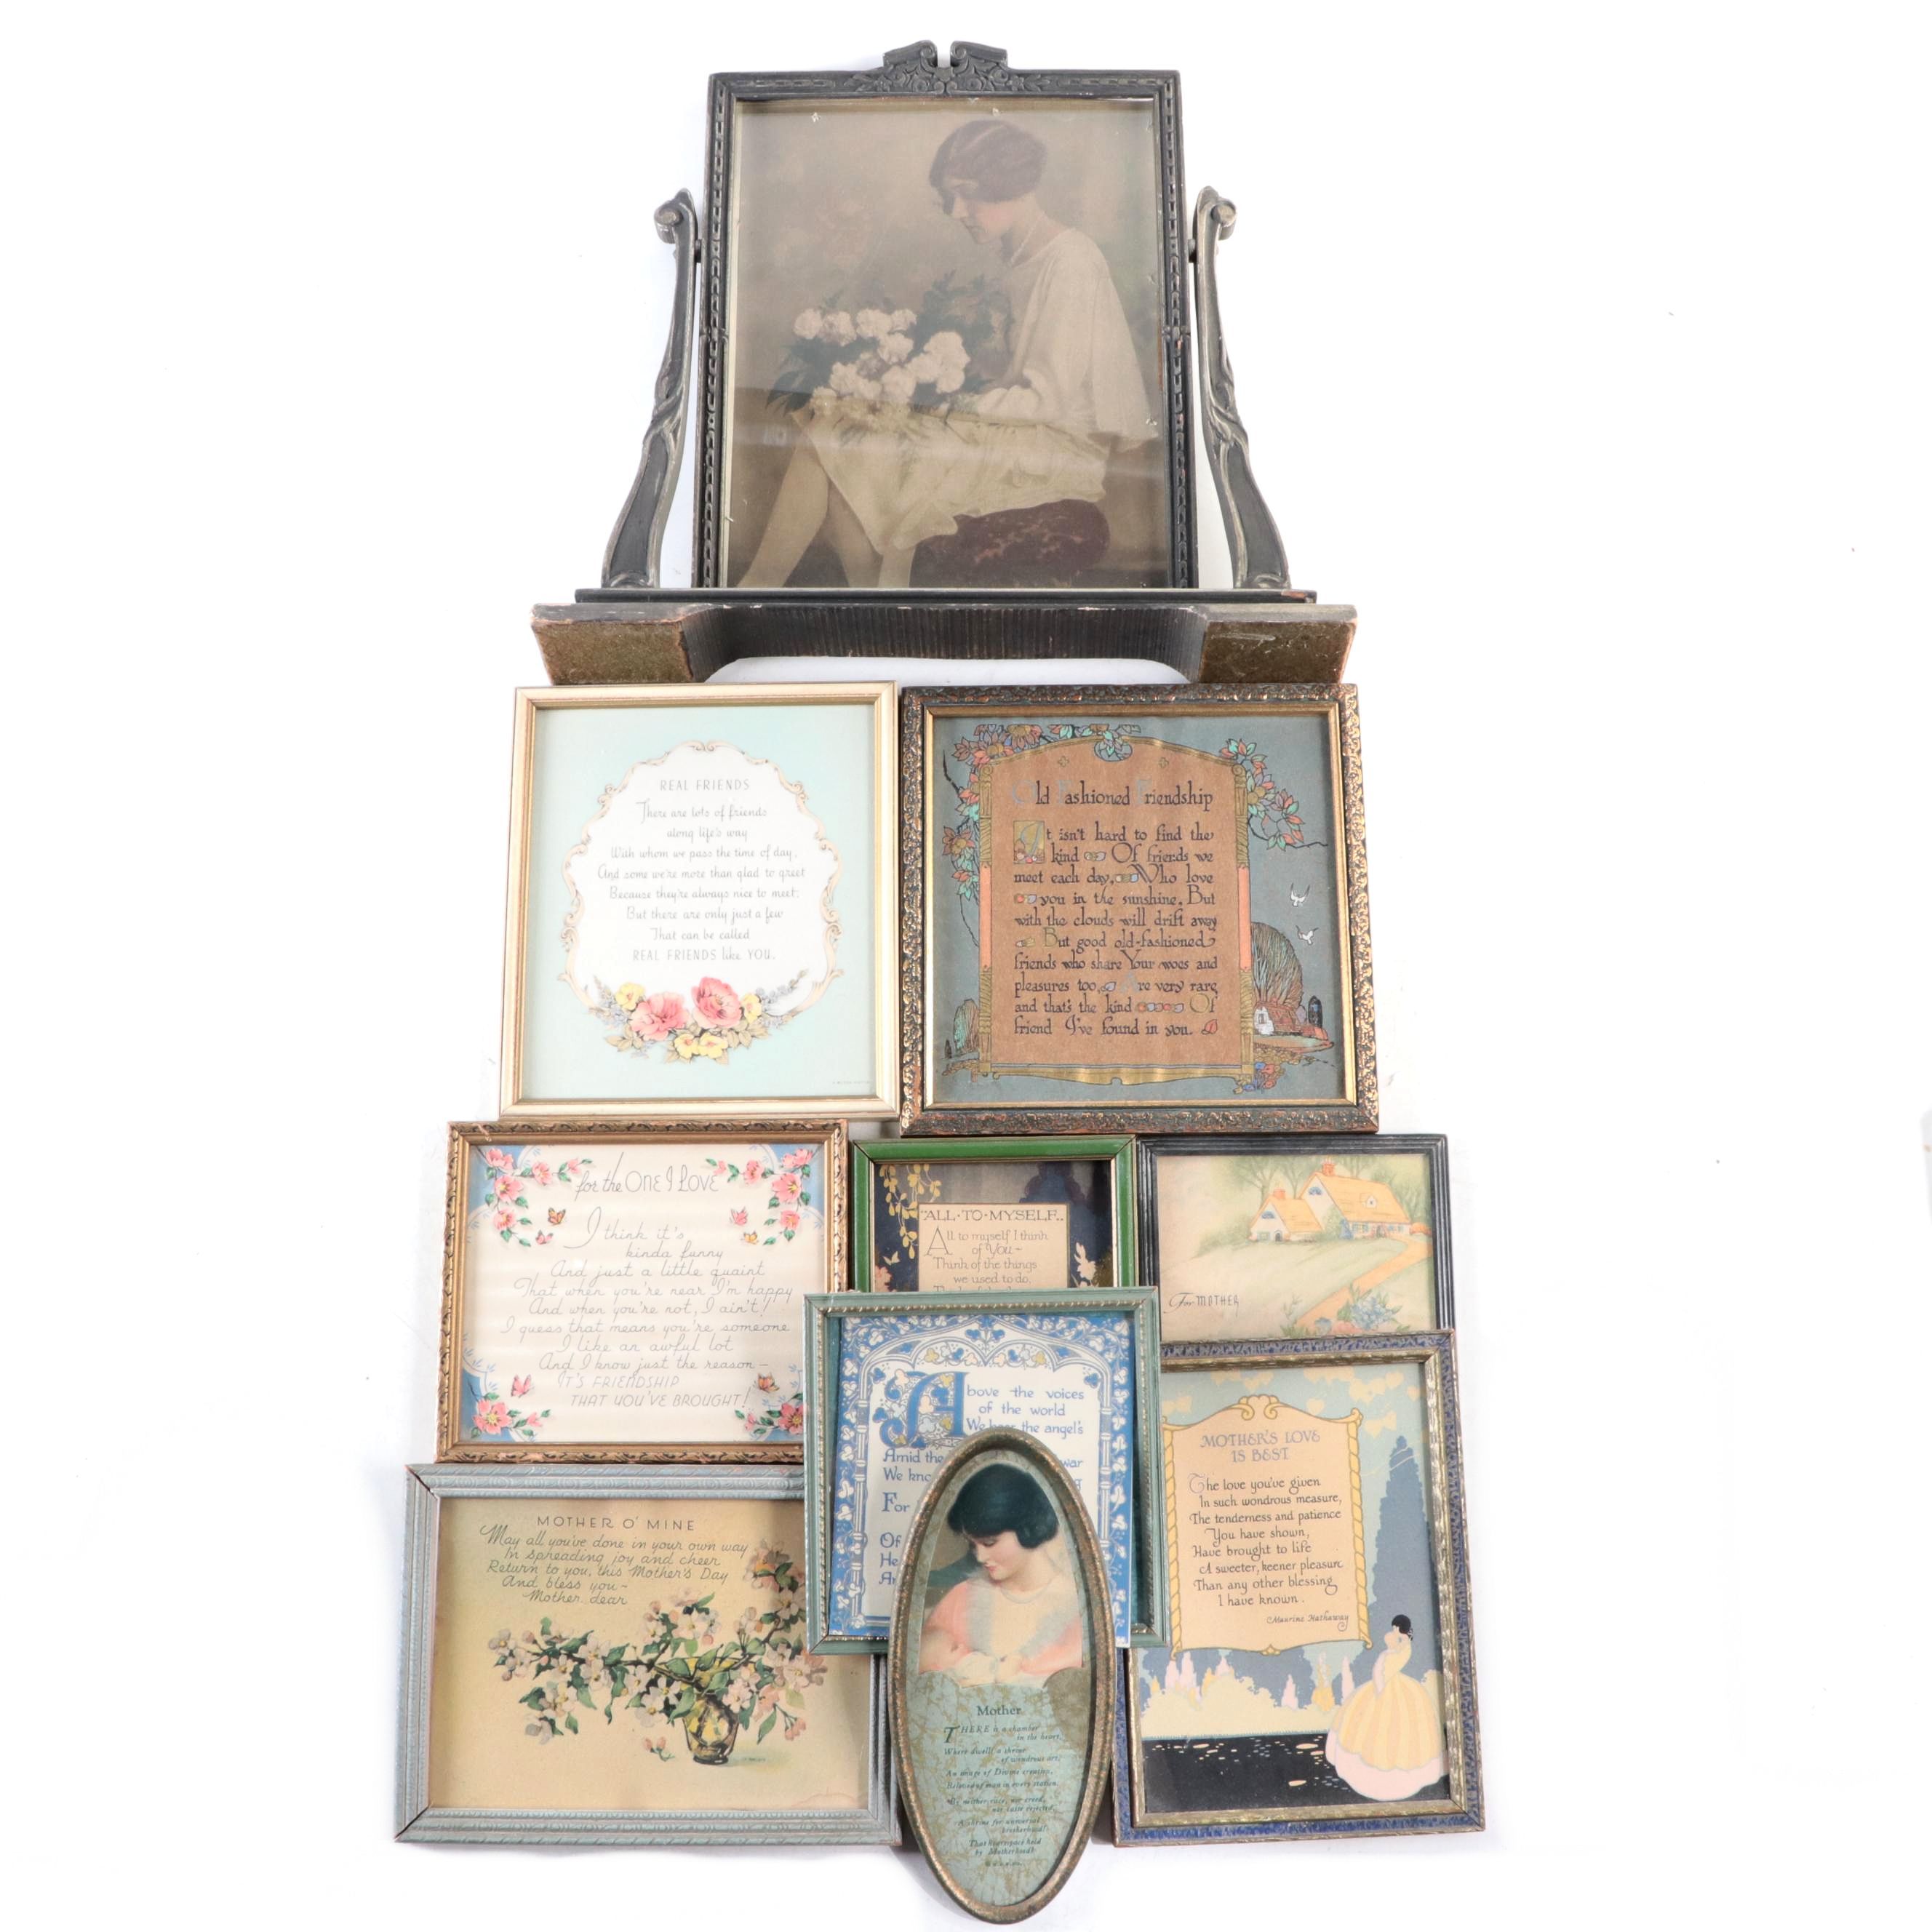 REAL FRIENDS
There are lots of friends
along life's way
With whom we pass the time of day,
And some we're more than glad to greet
Because they're always nice to meet;
But there are only just a few
That can be called
REAL FRIENDS like YOU.
Old Fashioned Friendship
It isn't hard to find the
kind Of friends we
meet each day, Who love
you in the sunshine. But
with the clouds will drift away
But good old-fashioned
friends who share Your woes and
pleasures too, Are very rare,
and that's the kind Of
friend I've found in you.
for the ONE I LOVE
I think it's
kinda funny
And just a little quaint
That when you're near I'm happy
And when you're not, I ain't!
I guess that means you're someone
I like an awful lot
And I know just the reason—
IT'S FRIENDSHIP
THAT YOU'VE BROUGHT!
"ALL·TO·MYSELF..
All to myself I think
of You—
Think of the things
we used to do,
For MOTHER
Above the voices
of the world
We hear the angel's
Amid the war
We kno
For
Of
He
An
MOTHER'S LOVE
IS BEST
The love you've given
In such wondrous measure,
The tenderness and patience
You have shown,
Have brought to life
A sweeter, keener pleasure
Than any other blessing
I have known.
Maurine Hathaway
MOTHER O' MINE
May all you've done in your own way
In spreading joy and cheer
Return to you, this Mother's Day
And bless you—
Mother, dear
Mother
THERE is a chamber
in the heart,
Where dwells a shrine
of wondrous art;
An image of Divine creation,
Beloved of man in every station.
nor creed,
A shrine for
by Motherhood!